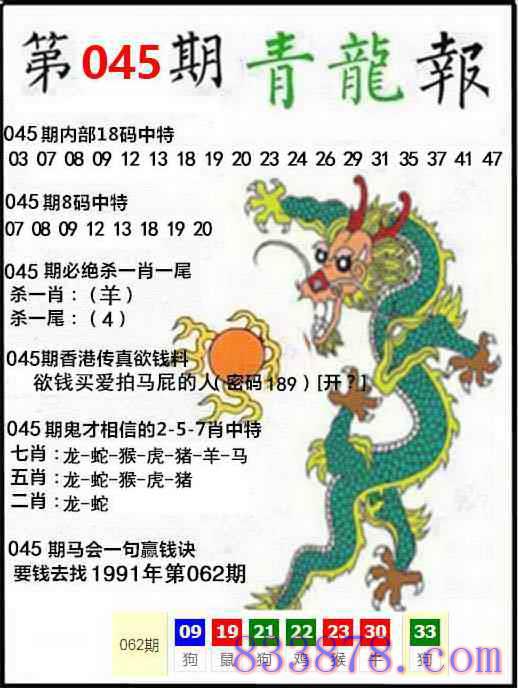 第045期青龍報
045期内部18码中特
03 07 08 09 12 13 18 19 20 23 24 26 29 31 35 37 41 47
045期8码中特
07 08 09 12 13 18 19 20
045 期必绝杀一肖一尾
杀一肖：（羊）
杀一尾：（4）
045期香港传真欲钱料
欲钱买爱拍马屁的人(密码189)[开?]
045期鬼才相信的2-5-7肖中特
七肖:龙-蛇-猴-虎-猪-羊-马
五肖:龙-蛇-猴-虎-猪
二肖:龙-蛇
045 期马会一句赢钱诀
要钱去找1991年第062期
062期 09 19 21 22 23 30 33
狗 鼠 狗 鸡 猴 牛 狗
883878.com